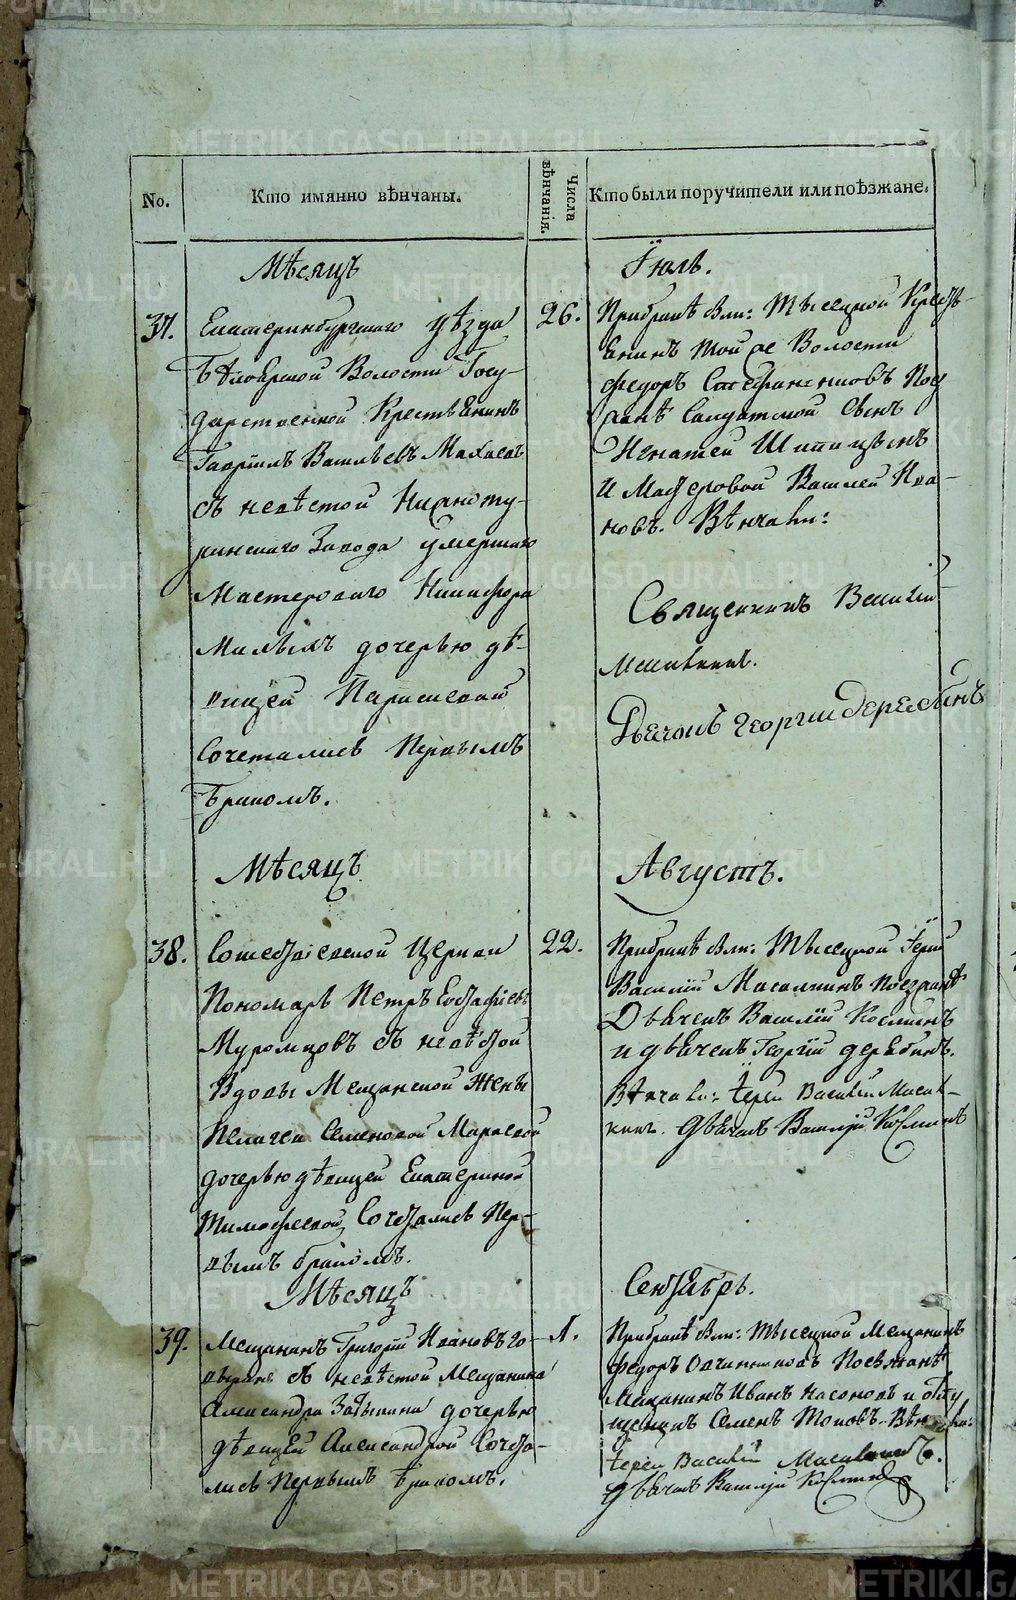 No.
Кто имянно вѣнчаны.
Числа вѣнчанія.
Кто были поручители или поѣзжане.
Мѣсяцъ
Іюль.
37.
Екатеринбургскаго уѣзда
Бѣлоярской Волости Госу-
дарственной Крестьянинъ
Гавріилъ Васильевъ
съ невѣстой Нижнoту-
ринскаго Завода умершаго
Мастероваго Никифора
дочерью дѣ-
вицей Парасковьей
Сочетались Первымъ
бракомъ.
26.
При бракѣ были: Тысецкой Кресть-
янинъ той же Волости
Федоръ Поез-
жанѣ Салдатской сынъ
Игнатей Шипицынъ
и Мастеровой Василей Ива-
новъ. Вѣнчали:
Священникъ Василій
Масалкинъ.
Дьячокъ Георгий Дерябинъ
Мѣсяцъ
Августъ.
38.
Церкви
Пономарь Петръ Евстафіевъ
Муромцовъ съ невѣстой
Вдовы Мещанской Жены
Пелагеи Семеновой
дочерью дѣвицей Екатериной
Тимофеевой, Сочетались Пер-
вымъ бракомъ.
22.
При бракѣ были: Тысецкой Іерей
Василій Масалкинъ Поезжанѣ
Дьячекъ Василій Косминъ
и дьячекъ Георгій Дерябинъ.
Вѣнчали: Іерей Василій Масал-
кинъ. Дьячекъ Василій Косминъ
Мѣсяцъ
Сентябрь.
39.
Мещанинъ Григорій Ивановъ Го-
съ невѣстой Мещанина
Александра дочерью
дѣвицей Александрой Сочета-
лись Первымъ бракомъ.
1.
При бракѣ были: тысецкой Мещанинъ
Федоръ Овчинниковъ Поезжанѣ
Мещанинъ Иванъ Насоновъ и
Семенъ Поповъ. Вѣнчали:
Іерей Василій Масалкинъ.
Дьячекъ Василій Косминъ
METRIKI.GASO-URAL.RU